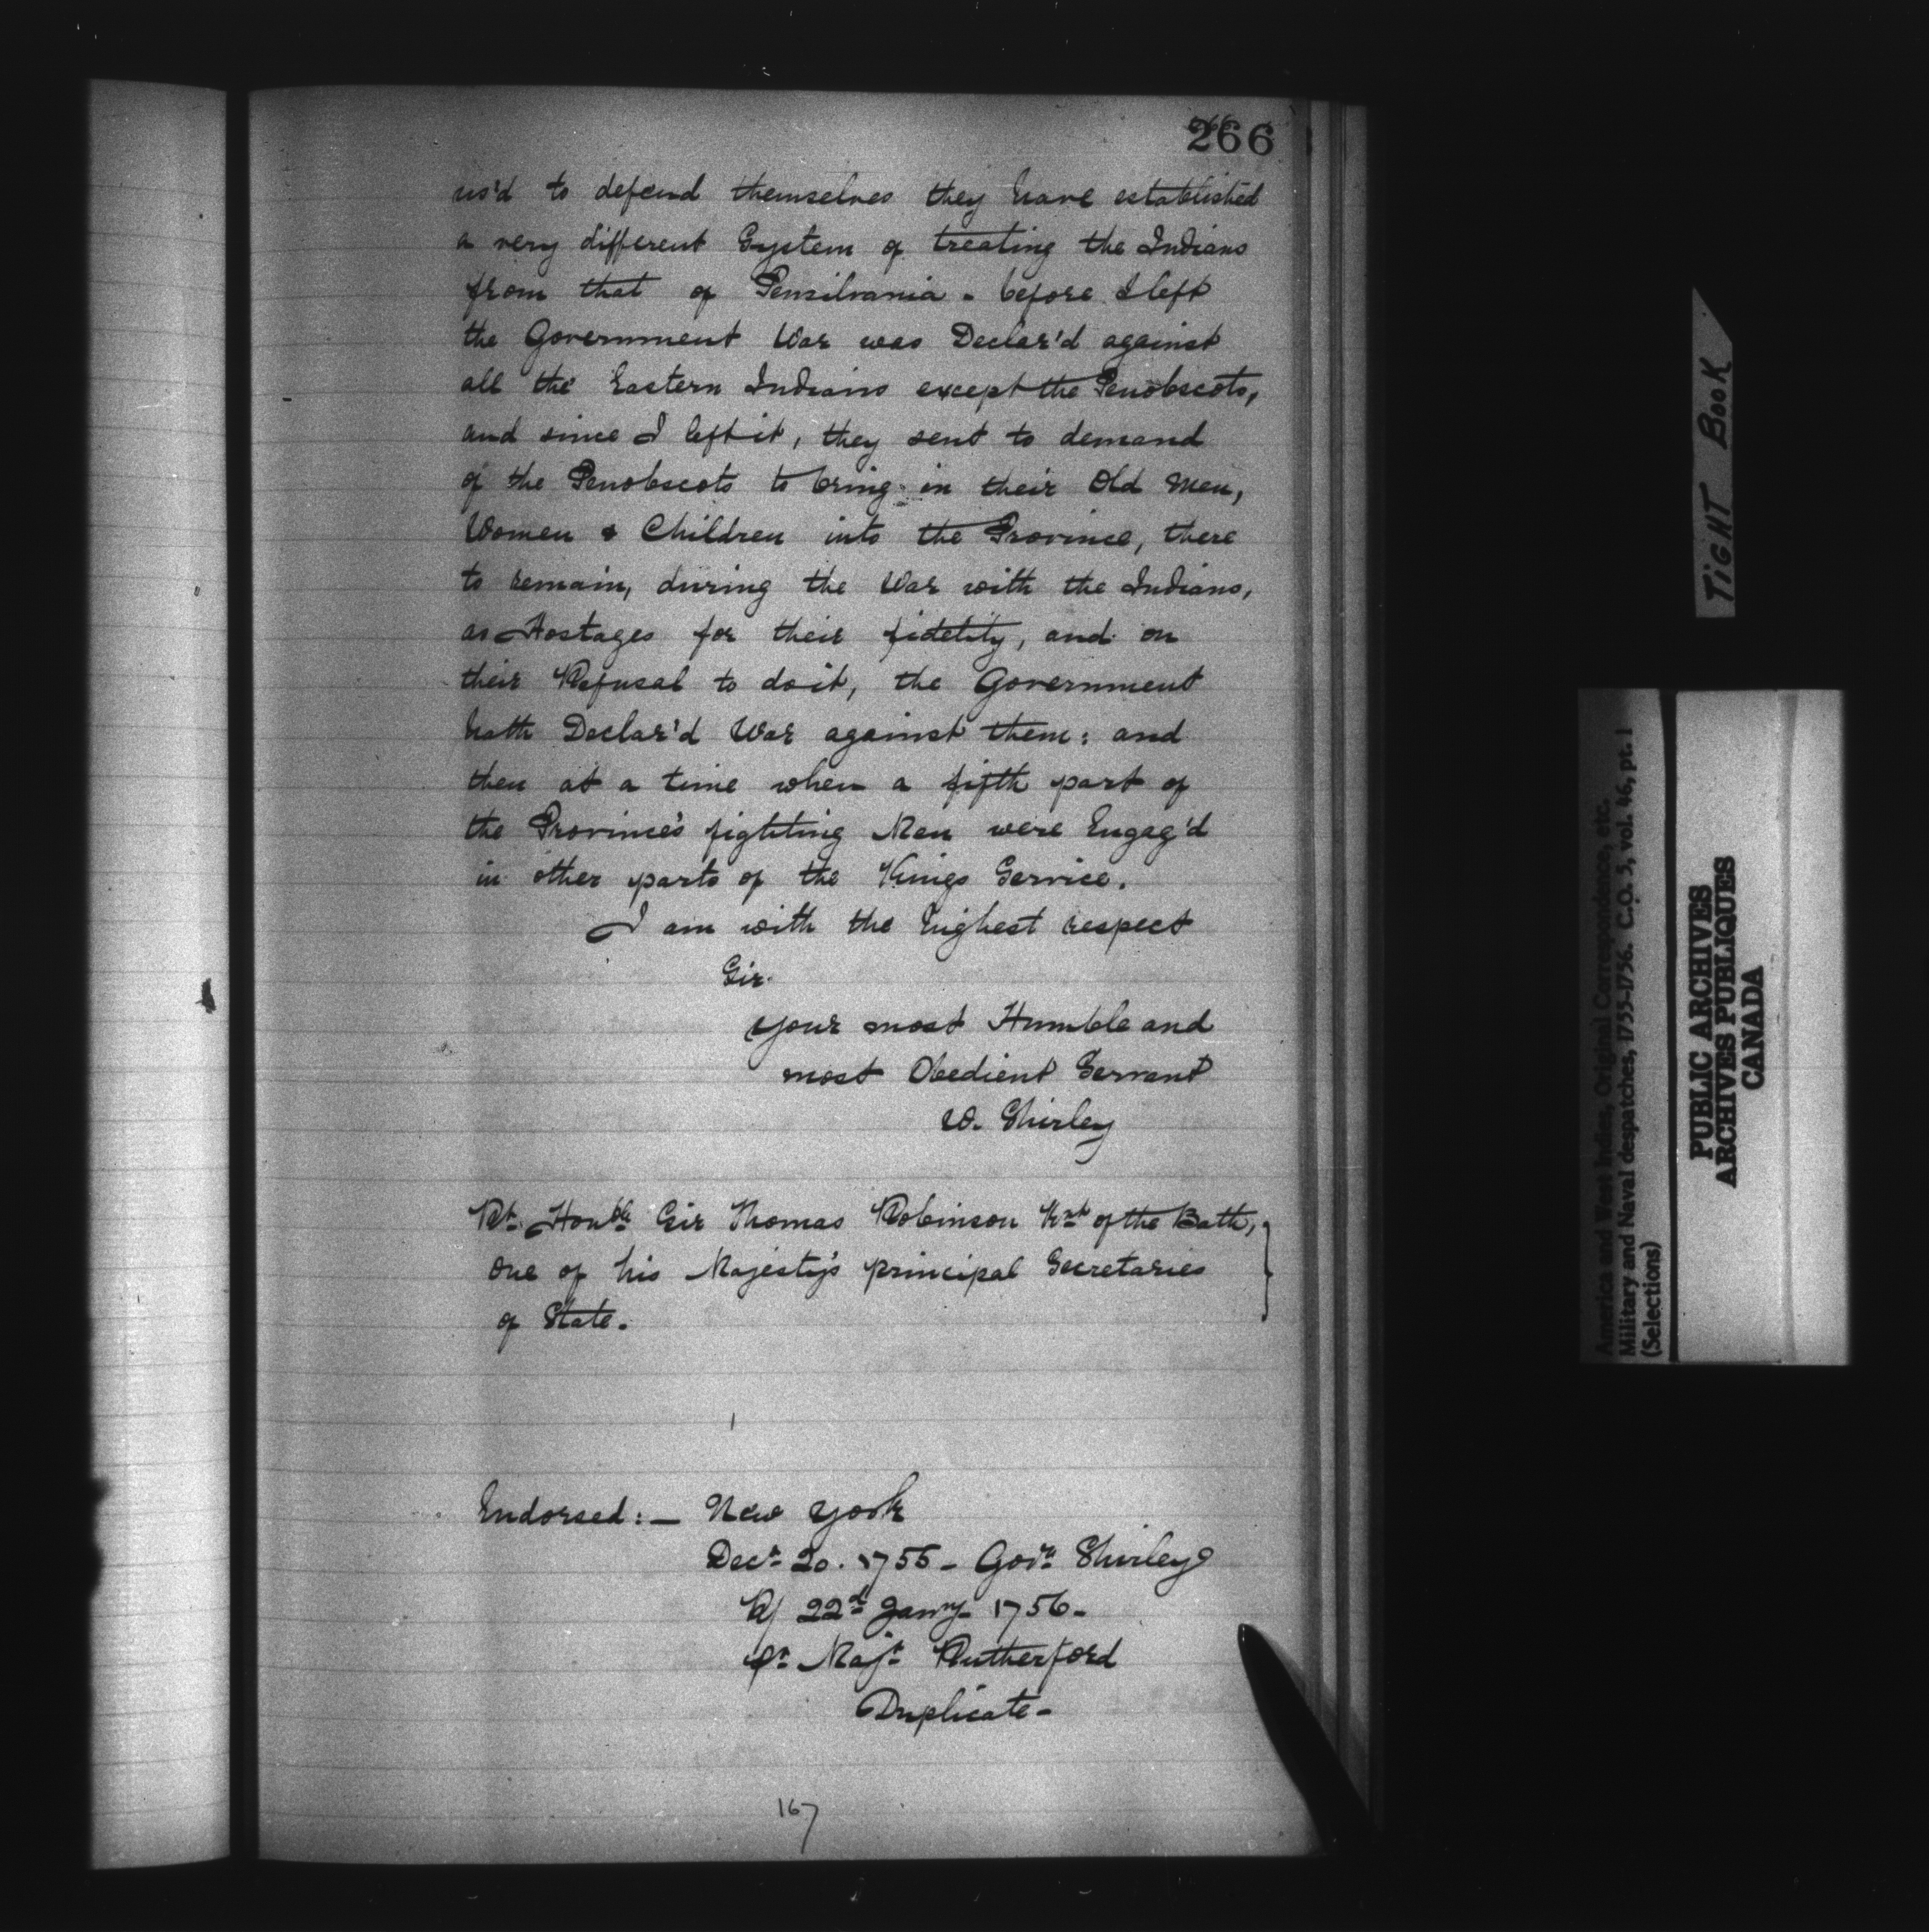 266
us'd to defend themselves they have established
a very different System of treating the Indians
from that of Pensilvania - before I left
the Government War was Declar'd against
all the Eastern Indians except the Penobscots,
and since I left it, they sent to demand
of the Penobscots to bring in their Old Men,
Women & Children into the Province, there
to remain, during the War with the Indians,
as Hostages for their fidelity, and on
their Refusal to do it, the Government
hath Declar'd War against them: and
then at a time when a fifth part of
the Province's fighting Men were Engag'd
in other parts of the Kings Service.
I am with the highest respect
Sir.
Your most Humble and
most Obedient Servant
W. Shirley
Rt. Honble Sir Thomas Robinson Knt of the Bath,
One of his Majesty's principal Secretaries
of State.
Endorsed:— New York
Decr 20. 1755 - Govr Shirley
R/ 22d Janry 1756-
pr Majr Rutherford
Duplicate-
167
TIGHT BOOK
America and West Indies, Original Correspondence, etc.
Military and Naval despatches, 1755-1756. C.O. 5, vol. 46, pt. 1
(Selections)
PUBLIC ARCHIVES
ARCHIVES PUBLIQUES
CANADA